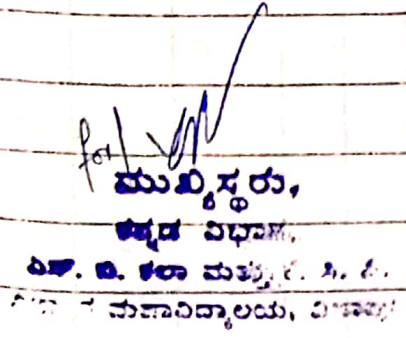 for/
ಮುಖ್ಯಸ್ಥರು,
ಕನ್ನಡ ವಿಭಾಗ,
ಎಸ್. ಬಿ. ಕಲಾ ಮತ್ತು ಕೆ. ಸಿ. ಪಿ.
ಮಹಾವಿದ್ಯಾಲಯ,